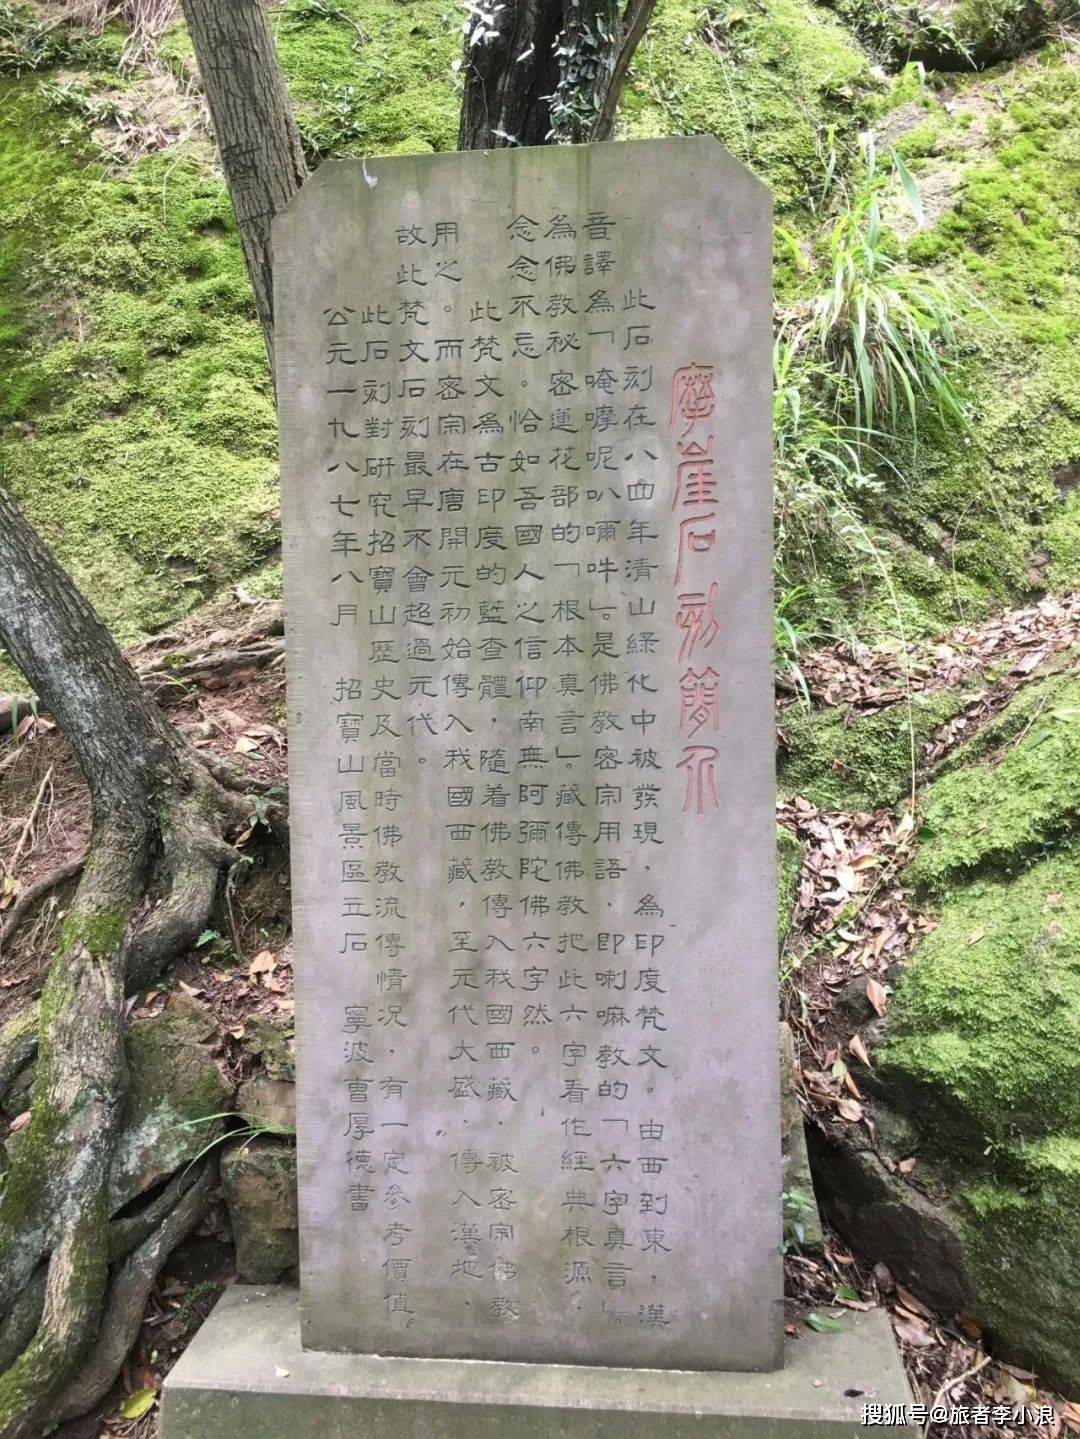 摩崖石刻簡介
此石刻在八四年清山緑化中被發現，為印度梵文。由西到東，漢
音譯為「唵嘛呢叭嘧吽」。是佛教密宗用語，即喇嘛教的「六字真言」。
為佛教祕密蓮花部的「根本真言」。藏傳佛教把此六字看作經典根源，
念念不忘。恰如吾國人之信仰南無阿彌陀佛六字然。
此梵文為古印度的藍查體，隨着佛教傳入我國西藏，被密宗佛教
用之。而密宗在唐開元初始傳入我國西藏，至元代大盛，傳入漢地，
故此梵文石刻最早不會超過元代。
此石刻對研究招寶山歷史及當時佛教流傳情況，有一定參考價值。
公元一九八七年八月 招寶山風景區立石 寧波曹厚德書
搜狐号@旅者李小浪